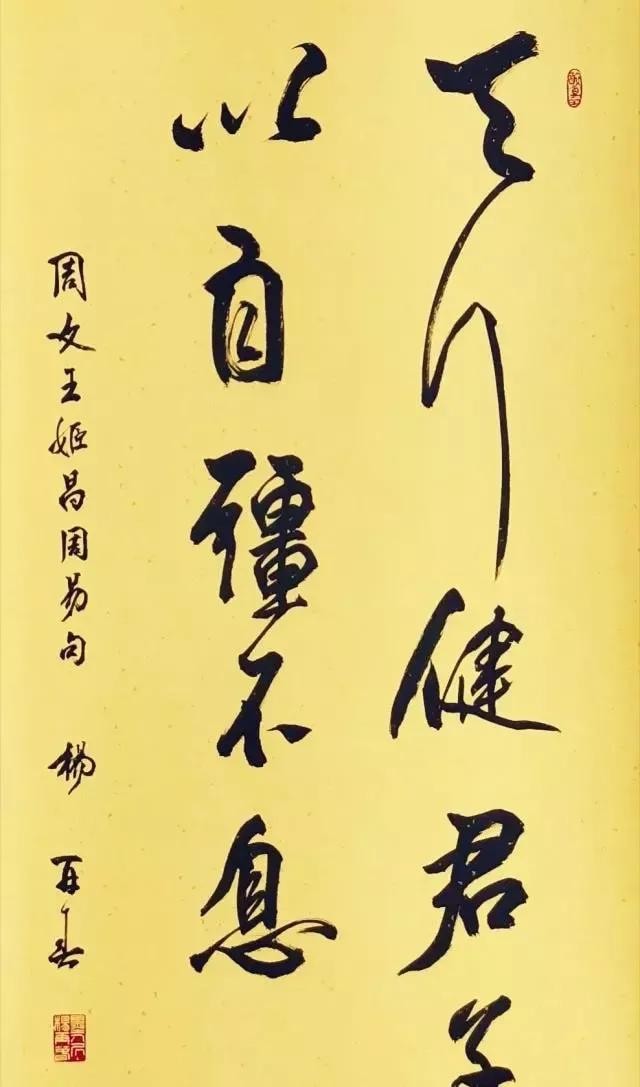 天行健君子
以自彊不息
周文王姬昌周易句 楊再春